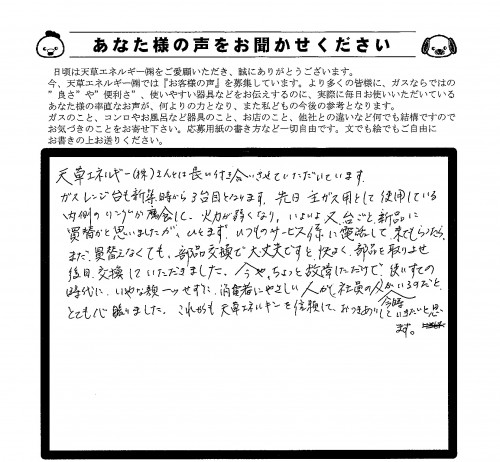 あなた様の声をお聞かせください
日頃は天草エネルギー㈱をご愛顧いただき、誠にありがとうございます。
今、天草エネルギー㈱では『お客様の声』を募集しています。より多くの皆様に、ガスならではの
”良さ”や”便利さ”、使いやすい器具などをお伝えするのに、実際に毎日お使いいただいている
あなた様の率直なお声が、何よりの力となり、また私どもの今後の参考となります。
ガスのこと、コンロやお風呂など器具のこと、お店のこと、他社との違いなど何でも結構ですので
お気づきのことをお寄せ下さい。応募用紙の書き方など一切自由です。文でも絵でもご自由に
お書きの上お送りください。
天草エネルギー(株)さんとは長い付き合いさせていただいています。
ガスレンジ台も新築時から3台目となります。先日主ガス用として使用している
内側のリングが腐食して、火力が弱くなり、いよいよ又、台ごと、新品に
買替かと思いましたが、ひとまず、いつものサービス係に電話して来てもらったら、
まだ、買替えなくても、部品交換で大丈夫ですと、快よく、部品を取りよせ
後日、交換していただきました。今や、ちょっと故障しただけで、使いすての
時代に、いやな顔一ツせずに、消費者にやさしい人が、社員の
とても心 ました。これからも天草エネルギーを信頼して、おつきあいしていきたいと思い
ます。